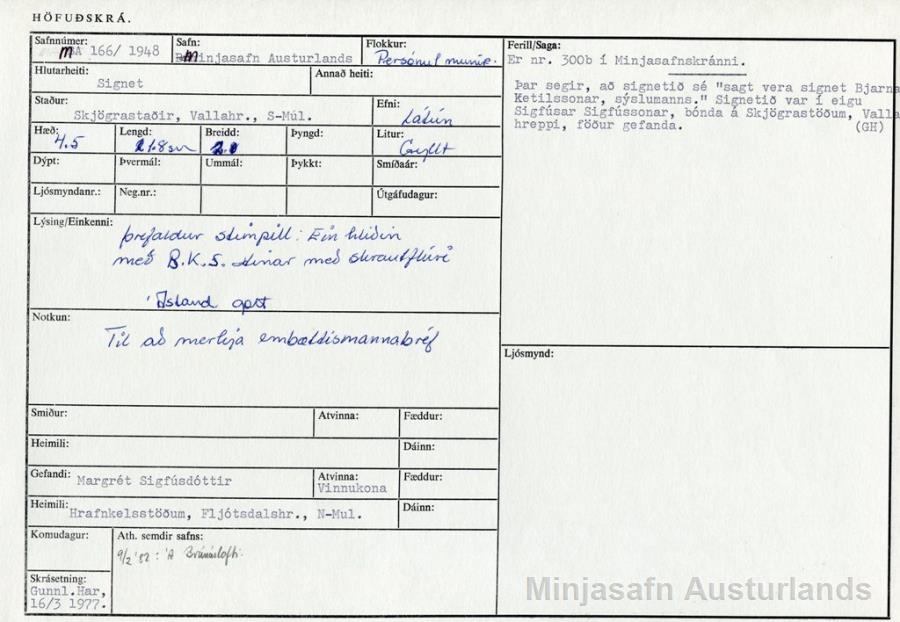 HÖFUÐSKRÁ.
Safnnúmer: MA 166/ 1948
Safn: Minjasafn Austurlands
Flokkur: Persónul munir.
Hlutarheiti: Signet
Annað heiti:
Staður: Skjögrastaðir, Vallahr., S-Múl.
Efni: Látún
Hæð: 4.5
Lengd:
Breidd: 2.0
Þyngd:
Litur: Gyllt
Dýpt:
Þvermál:
Ummál:
Þykkt:
Smíðaár:
Ljósmyndanr.:
Neg.nr.:
Útgáfudagur:
Lýsing/Einkenni: þrefaldur stimpill: Ein hliðin
með B.K.S. hinar með skrautflúri
Ástand gott
Notkun:
Til að merkja embættismannabréf
Smiður:
Atvinna:
Fæddur:
Heimili:
Dáinn:
Gefandi: Margrét Sigfúsdóttir
Atvinna: Vinnukona
Fæddur:
Heimili: Hrafnkelsstöðum, Fljótsdalshr., N-Mul.
Dáinn:
Komudagur:
Ath. semdir safns:
9/2 '82: Á
Skrásetning:
Gunnl.Har,
16/3 1977.
Ferill/Saga:
Er nr. 300b í Minjasafnskránni.
Þar segir, að signetið sé "sagt vera signet Bjarna
Ketilssonar, sýslumanns." Signetið var í eigu
Sigfúsar Sigfússonar, bónda á Skjögrastöðum, Valla
hreppi, föður gefanda. (GH)
Ljósmynd:
Minjasafn Austurlands